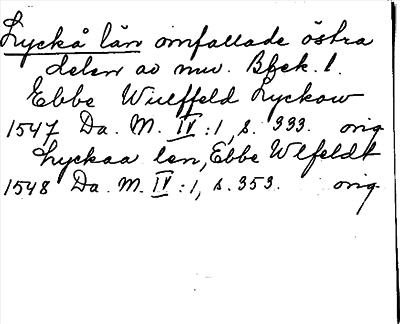 Lyckå län omfallade östra
delen av nuv. Blek. l.
Ebbe Wulffeld Lyckow
1547 Da. M. IV:1, s. 333. orig
Lyckaa len, Ebbe Wlfeldt
1548 Da. M. IV:1, s. 353. orig